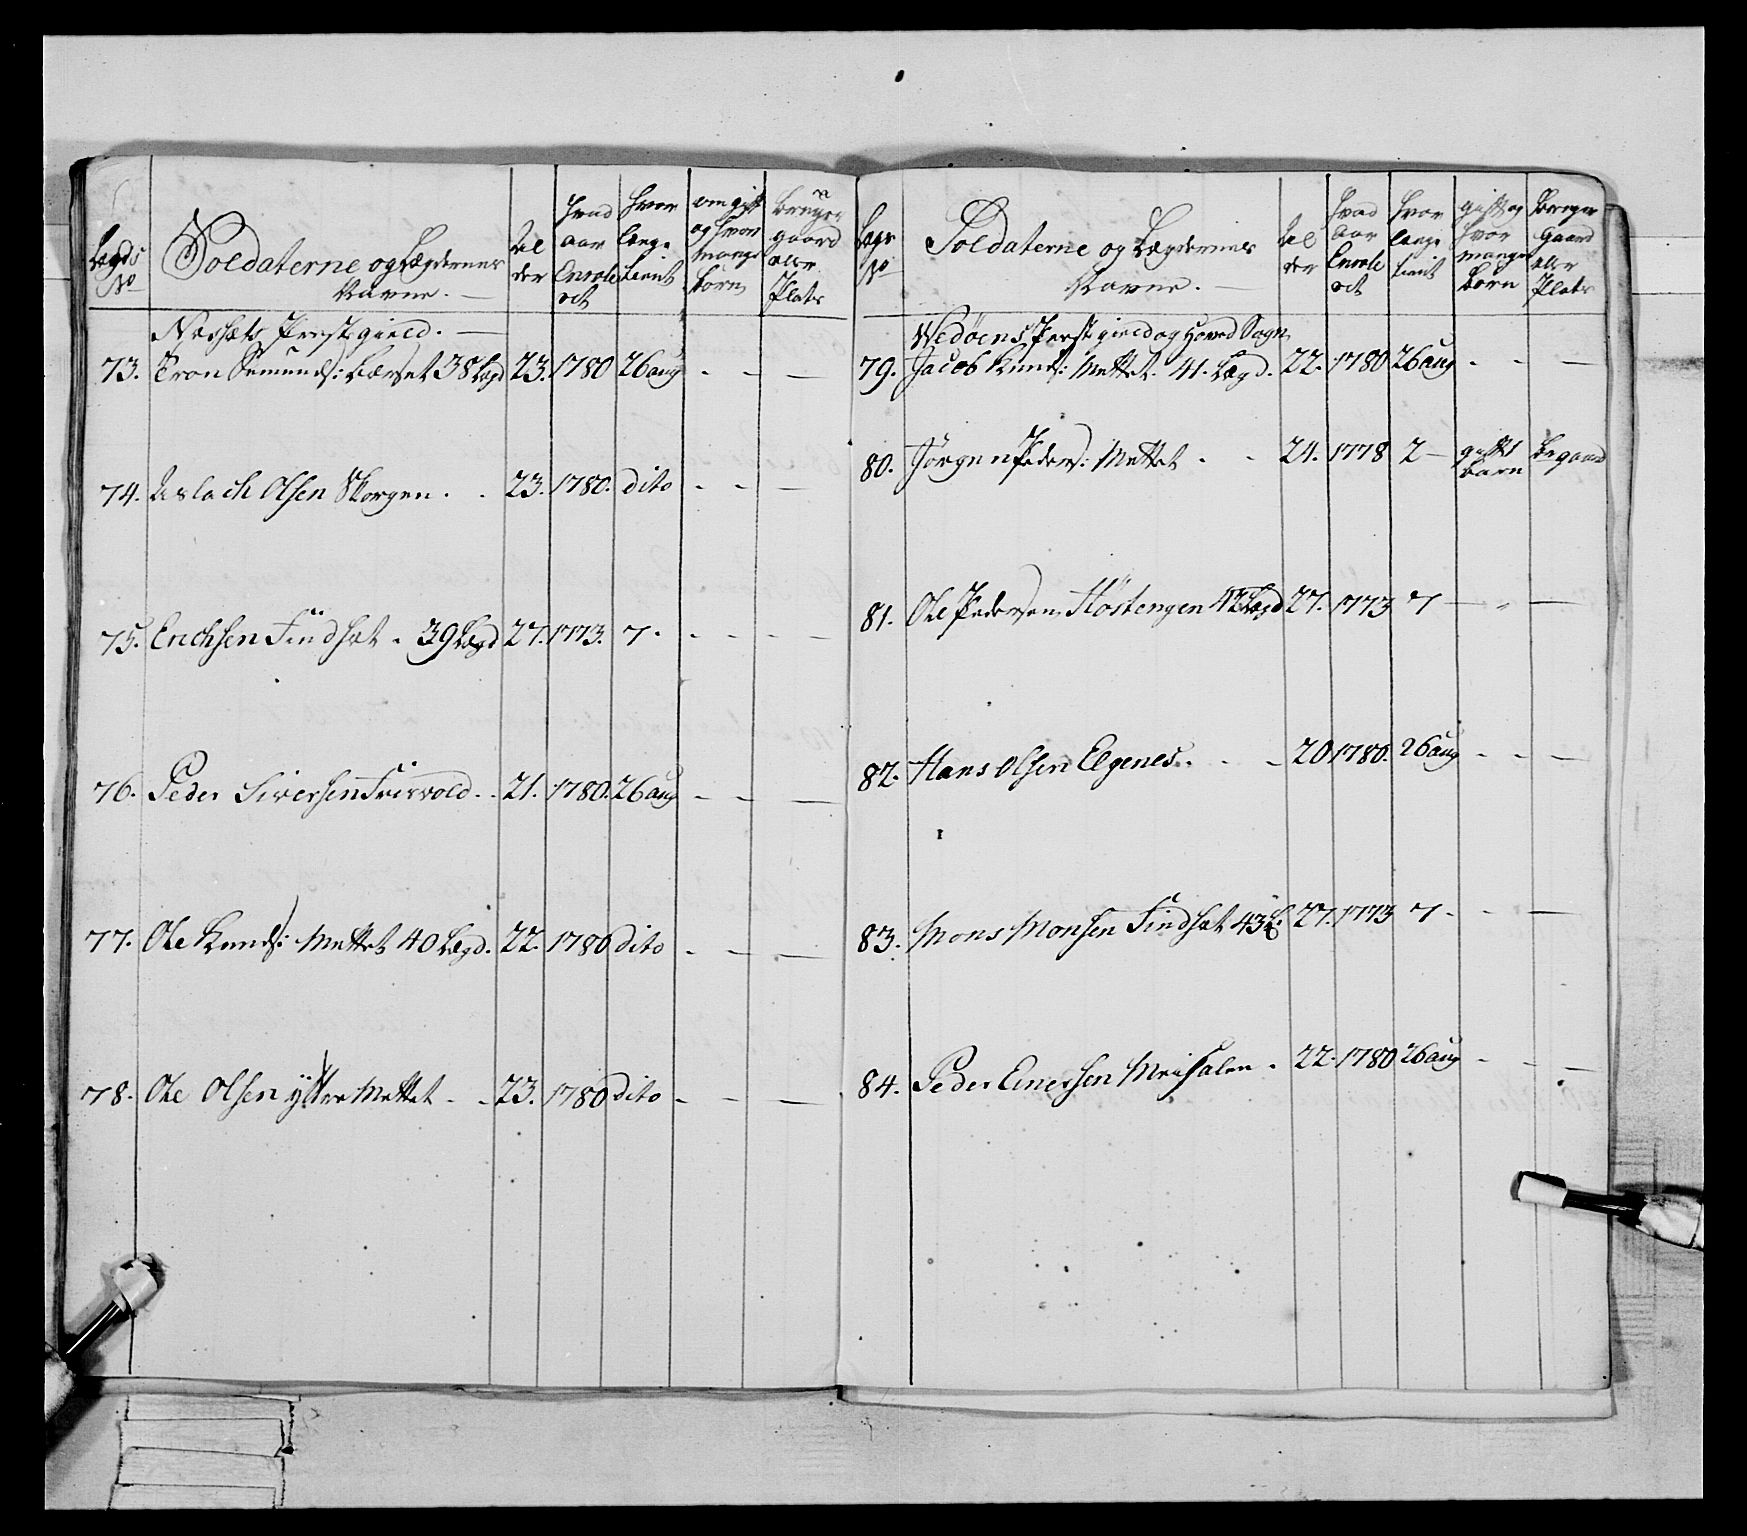 Lægds No
Soldaterne og Lægdernes Navne.
Al der
hvad aar Enrole ret
hvor længe tient
om gift og hvor mange børn
bruger gaard eller Plats
Næssets Præstegield.
73. Tron Semunds: Bærset 38 Lægd 23. 1780 26 aug - - -
74. Aslach Olsen Skorgen. . 23. 1780. dito - - -
75. Erichsen Findset. 39 Lægd 27. 1773. 7. - - -
76. Peder Siversen . . 21. 1780. 26 aug - - -
77. Ole Knuds: Mettet 40 Lægd. 22. 1780 dito - - -
78. Ole Olsen ÿttre Mettet . . 23. 1780 dito - - -
Lægds No
Soldaterne og Lægdernes Navne.
Al der
hvad aar Enrole ret
hvor længe tient
gift og hvor mange børn
bruger gaard eller Plats
Wedöens Præstegield og Hoved Sogn
79. Jacob Knuds: Mettet. 41. Lægd. 22. 1780 26 aug - - -
80. Jörgen Peders: Mettet . . 24. 1778 2 - gift 1 barn br gaard
81. Ole Pedersen Höstengen 42 Lægd 27. 1773 7 - - -
82. Hans Olsen Elgenes. . - 20 1780. 26 aug - - -
83. Mons Monsen Findset 43 L: 27. 1773 7 - - -
84. Peder Einersen Meisalen . 22. 1780 26 aug - - -